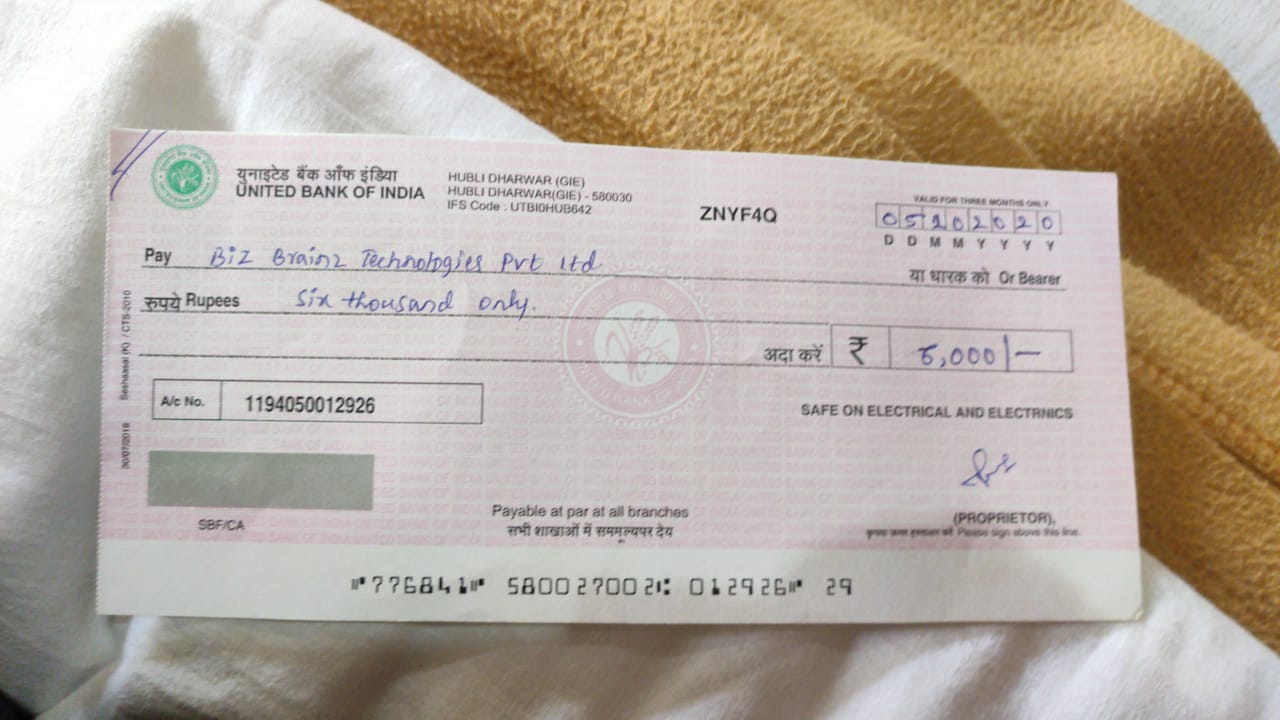 युनाइटेड बैंक ऑफ इंडिया
UNITED BANK OF INDIA
HUBLI DHARWAR (GIE)
HUBLI DHARWAR(GIE) - 580030
IFS Code : UTBI0HUB642
ZNYF4Q
VALID FOR THREE MONTHS ONLY
05102020
D D M M Y Y Y Y
Pay Biz Brainz Technologies Pvt ltd
या धारक को Or Bearer
रुपये Rupees Six thousand only.
अदा करें ₹ 6,000/-
A/c No. 1194050012926
SAFE ON ELECTRICAL AND ELECTRNICS
SBF/CA
Payable at par at all branches
सभी शाखाओं में सममूल्यपर देय
(PROPRIETOR),
Please sign above this line.
Seshaasai (K) / CTS-2010
30/07/2019
776841 580027002 012926 29